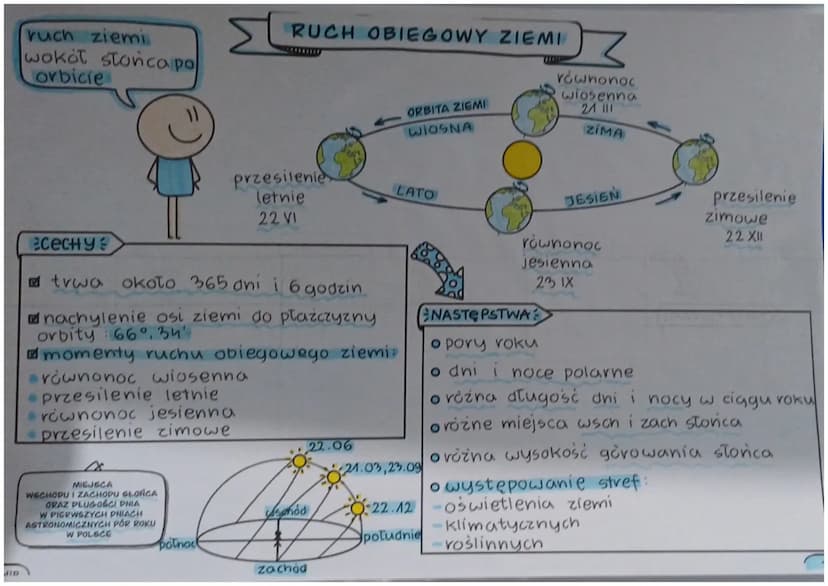 RUCH OBIEGOWY ZIEMI
ruch ziemi
wokół słońca po
orbicie
równonoc
wiosenna
21 III
ORBITA ZIEMI
WIOSNA
ZIMA
przesilenie
letnie
22 VI
LATO
JESIEŃ
przesilenie
zimowe
22 XII
równonoc
jesienna
23 IX
CECHY
trwa około 365 dni i 6 godzin
nachylenie osi ziemi do płażczyzny
orbity : 66°, 34'
momenty ruchu obiegowego ziemi:
równonoc wiosenna
przesilenie letnie
równonoc jesienna
przesilenie zimowe
NASTĘPSTWA
pory roku
dni i noce polarne
różna długość dni i nocy w ciągu roku
różne miejsca wsch i zach słońca
różna wysokość górowania słońca
występowanie stref:
- oświetlenia ziemi
- klimatycznych
- roślinnych
MIEJSCA
WSCHODU I ZACHODU SŁOŃCA
ORAZ DŁUGOŚCI DNIA
W PIERWSZYCH DNIACH
ASTRONOMICZNYCH PÓR ROKU
W POLSCE
22.06
21.03, 23.09
22.12
wschód
północ
południe
zachód